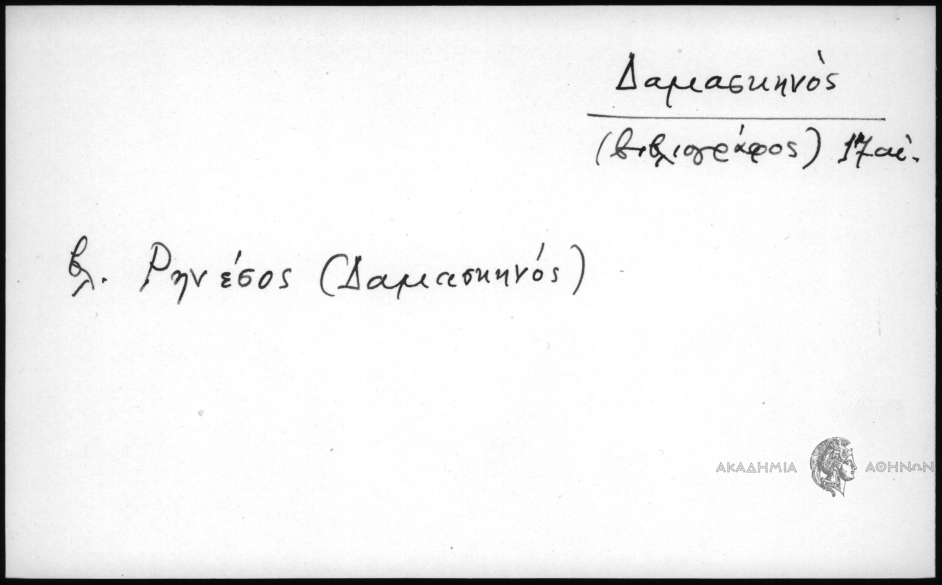 Δαμασκηνός
(βιβλιογράφος) 17 αἰ.
βλ. Ρηνέσος (Δαμασκηνός)
ΑΚΑΔΗΜΙΑ ΑΘΗΝΩΝ